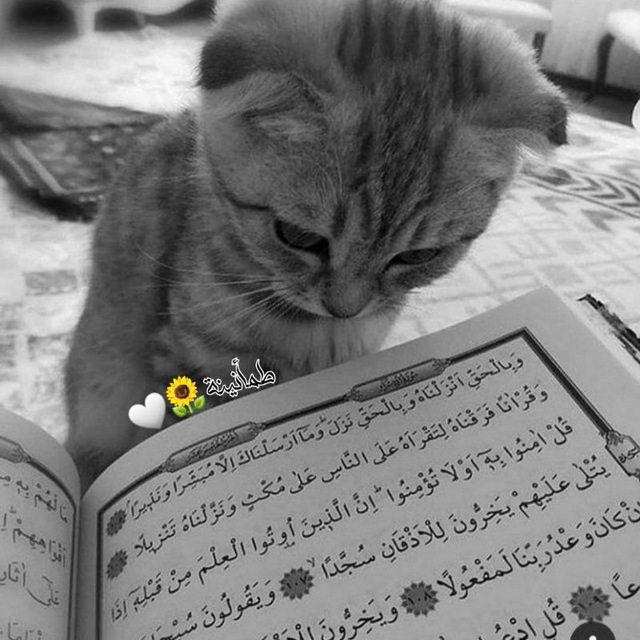 طمأنينة
وَبِالْحَقِّ اَنْزَلْنَاهُ وَبِالْحَقِّ نَزَلَ وَمَٓا اَرْسَلْنَاكَ اِلَّا مُبَشِّرًا وَنَذِيرًا
وَقُرْاٰنًا فَرَقْنَاهُ لِتَقْرَاَهُ عَلَى النَّاسِ عَلٰى مُكْثٍ وَنَزَّلْنَاهُ تَنْزِيلًا
قُلْ اٰمِنُوا بِهِٓ اَوْ لَا تُؤْمِنُوا اِنَّ الَّذِينَ اُو۫تُوا الْعِلْمَ مِنْ قَبْلِهِٓ اِذَا
يُتْلٰى عَلَيْهِمْ يَخِرُّونَ لِلْاَذْقَانِ سُجَّدًا ۝١٠٧ وَيَقُولُونَ سُبْحَانَ
كَانَ وَعْدُ رَبِّنَا لَمَفْعُولًا ۝ وَيَخِرُّونَ
قُلِ ادْعُوا
مَا لَهُمْ بِهِ
اَفْوَاهِهِمْ
عَلٰٓى اٰثَارِ